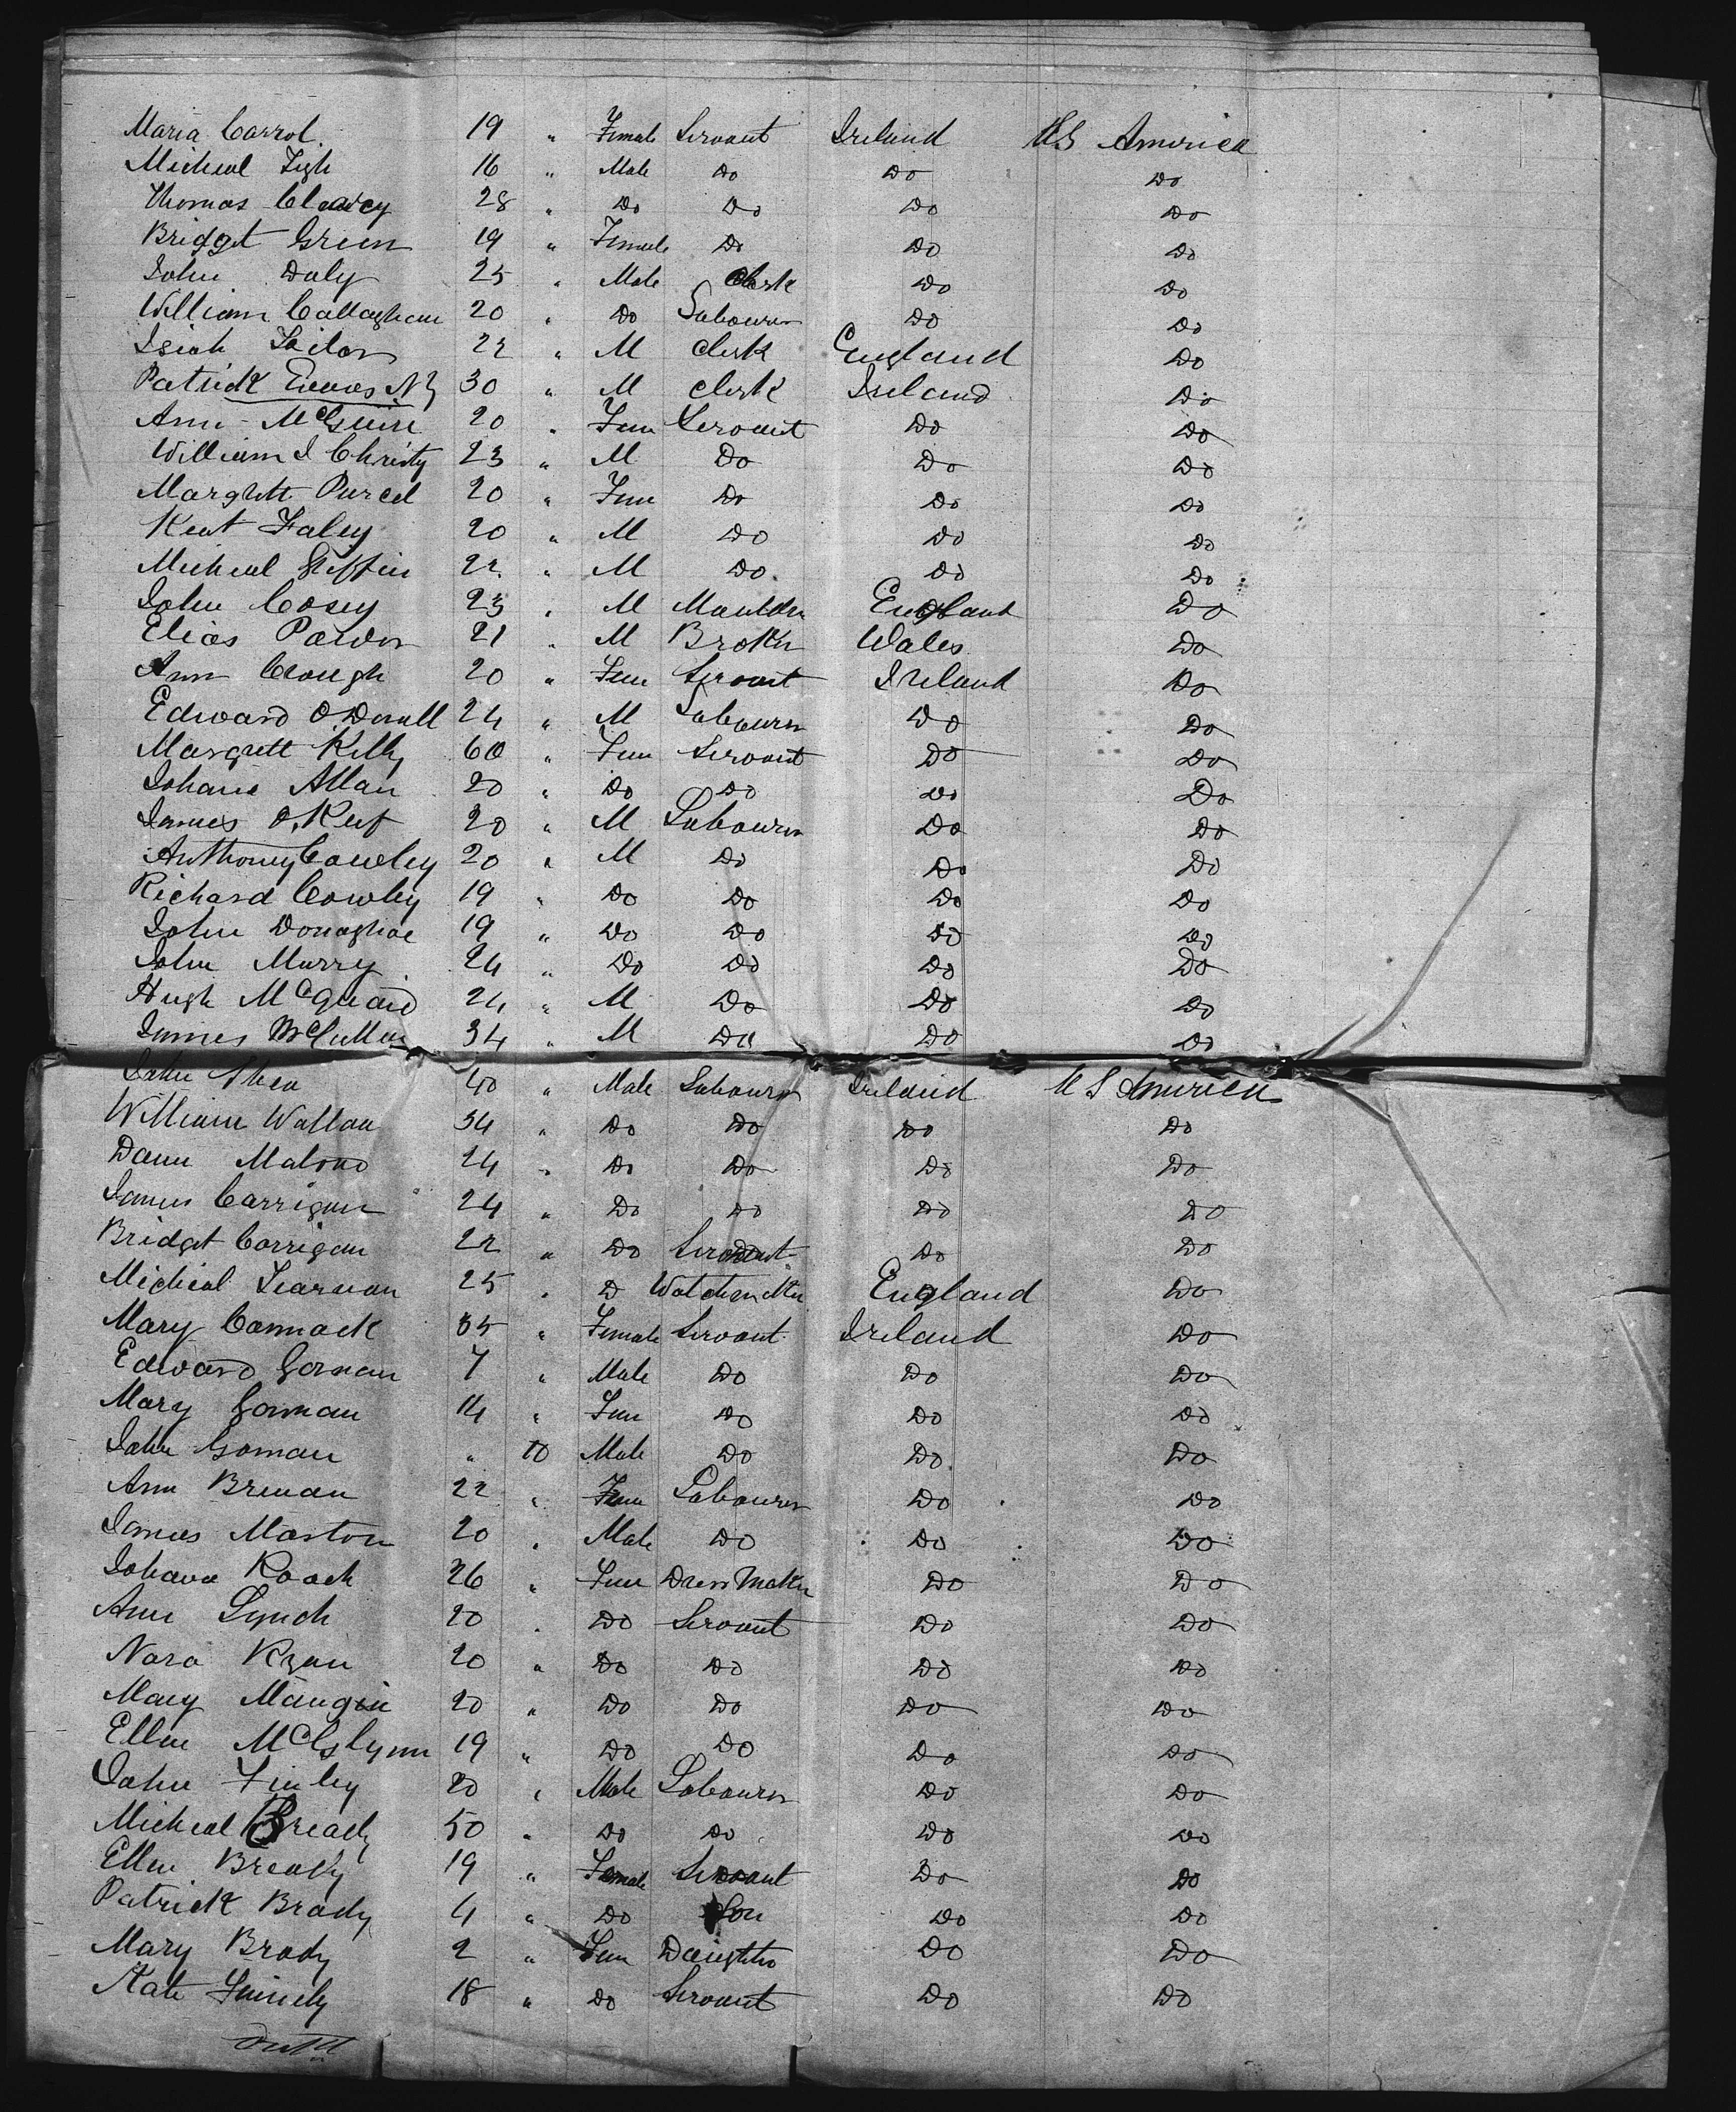 Maria Carrol 19 " Female Servant Ireland US America
Micheal Tigh 16 " Male Do Do Do
Thomas Clancy 28 " Do Do Do Do
Bridget Green 19 " Female Do Do Do
John Daly 25 " Male Clerk Do Do
William Callaghan 20 " Do Labourer Do Do
Isiah Tailor 22 " M Clerk England Do
Patrick 30 " M Clerk Ireland Do
Ann McGuire 20 " Fem Servant Do Do
William J Christy 23 " M Do Do Do
Margrett Purcel 20 " Fem Do Do Do
Kent Faley 20 " M Do Do Do
Micheal Griffin 22 " M Do Do Do
John Cosey 23 " M Moulder England Do
Elias 21 " M Broker Wales Do
Ann Clough 20 " Fem Servant Ireland Do
Edward O'Donell 24 " M Labourer Do Do
Margrett Kelly 60 " Fem Servant Do Do
Johana Allan 20 " Do Do Do Do
James O'Keef 20 " M Labourer Do Do
Anthony Cowley 20 " M Do Do Do
Richard Cowley 19 " Do Do Do Do
John Donaghoe 19 " Do Do Do Do
John Murry 24 " Do Do Do Do
Hugh McQuaid 24 " M Do Do Do
James McCullen 34 " M Do Do Do
John Shea 40 " Male Labourer Ireland U S America
William Wallan 34 " Do Do Do Do
Dann Malono 24 " Do Do Do Do
James Carrigan 24 " Do Do Do Do
Bridget Corrigan 22 " Do Servant Do Do
Micheal 25 " D Watchmaker England Do
Mary Cormack 35 " Female Servant Ireland Do
Edward Gorman 7 " Male Do Do Do
Mary Gorman 14 " Fem Do Do Do
John Gorman " 10 Male Do Do Do
Ann Brenan 22 " Fem Labourer Do Do
James Marston 20 " Male Do Do Do
Johana Roach 26 " Fem Dress Maker Do Do
Ann Lynch 20 " Do Servant Do Do
Nora Ryan 20 " Do Do Do Do
Mary Mangin 20 " Do Do Do Do
Ellen McGlynn 19 " Do Do Do Do
John Finley 20 " Male Labourer Do Do
Micheal Bready 50 " Do Do Do Do
Ellen Bready 19 " Female Servant Do Do
Patrick Brady 4 " Do Son Do Do
Mary Brady 2 " Fem Daughter Do Do
Kate 18 " Do Servant Do Do